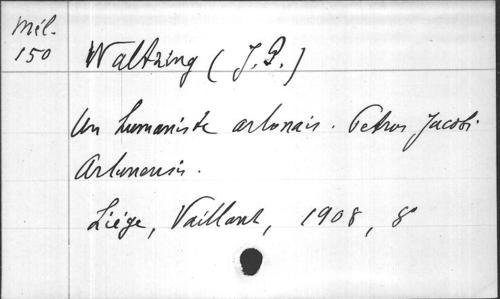 Mél.
150
Waltzing (J. P.)
Un humaniste arlonais. Petrus Jacobi
Arlunensis.
Liége, Vaillant, 1908, 8°